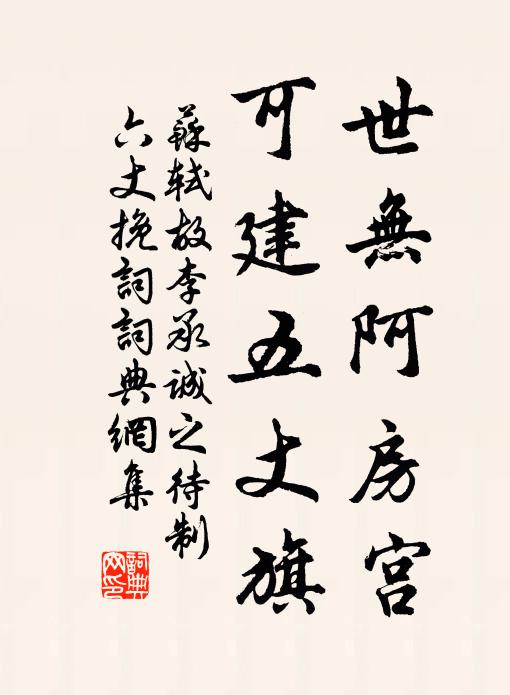 世無阿房宮
可建五丈旗
蘇軾故李承誠之待制
六丈挽詞詞典網集
詞典网印